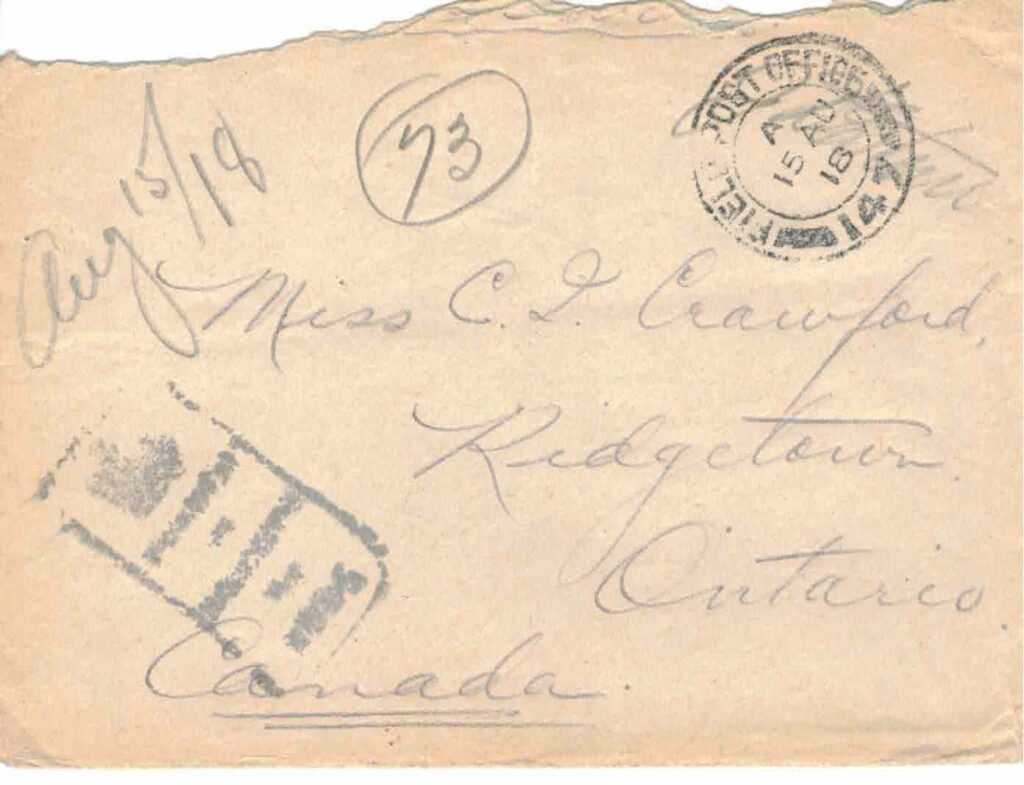 Aug 15/18
73
FIELD POST OFFICE
A
15 AU
18
147
Miss C. I. Crawford,
Ridgetown
Ontario
Canada.